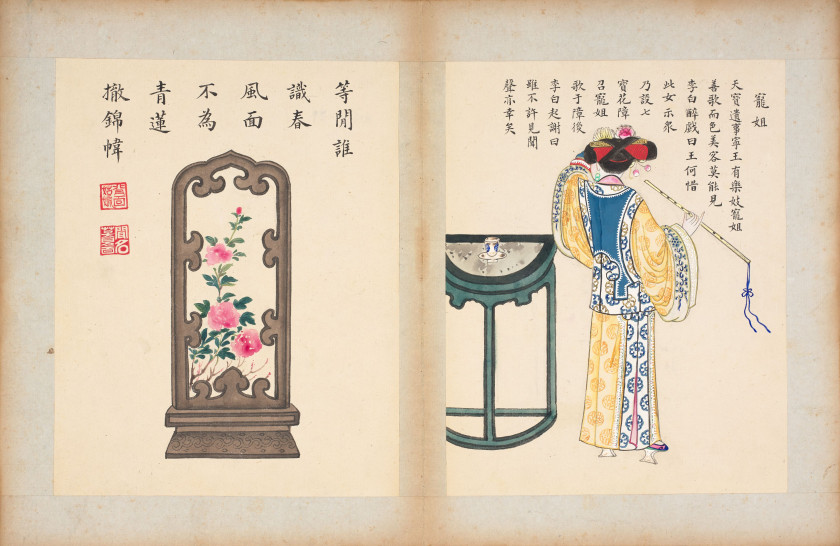 寵姐
天寶遺事寧王有樂妓寵姐
善歌而色美客莫能見
李白醉戲曰王何惜
此女示衆
乃設七
寶花障
召寵姐
歌于障後
李白起謝曰
雖不許見聞
聲亦幸矣
等閒誰
識春
風面
不為
青蓮
撤錦幃